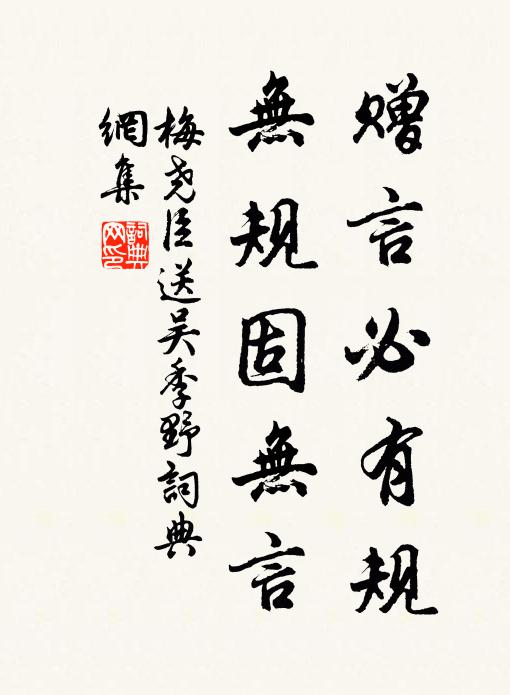 贈言必有規
無規固無言
梅堯臣送吴季野詞典
網集
詞典
网印